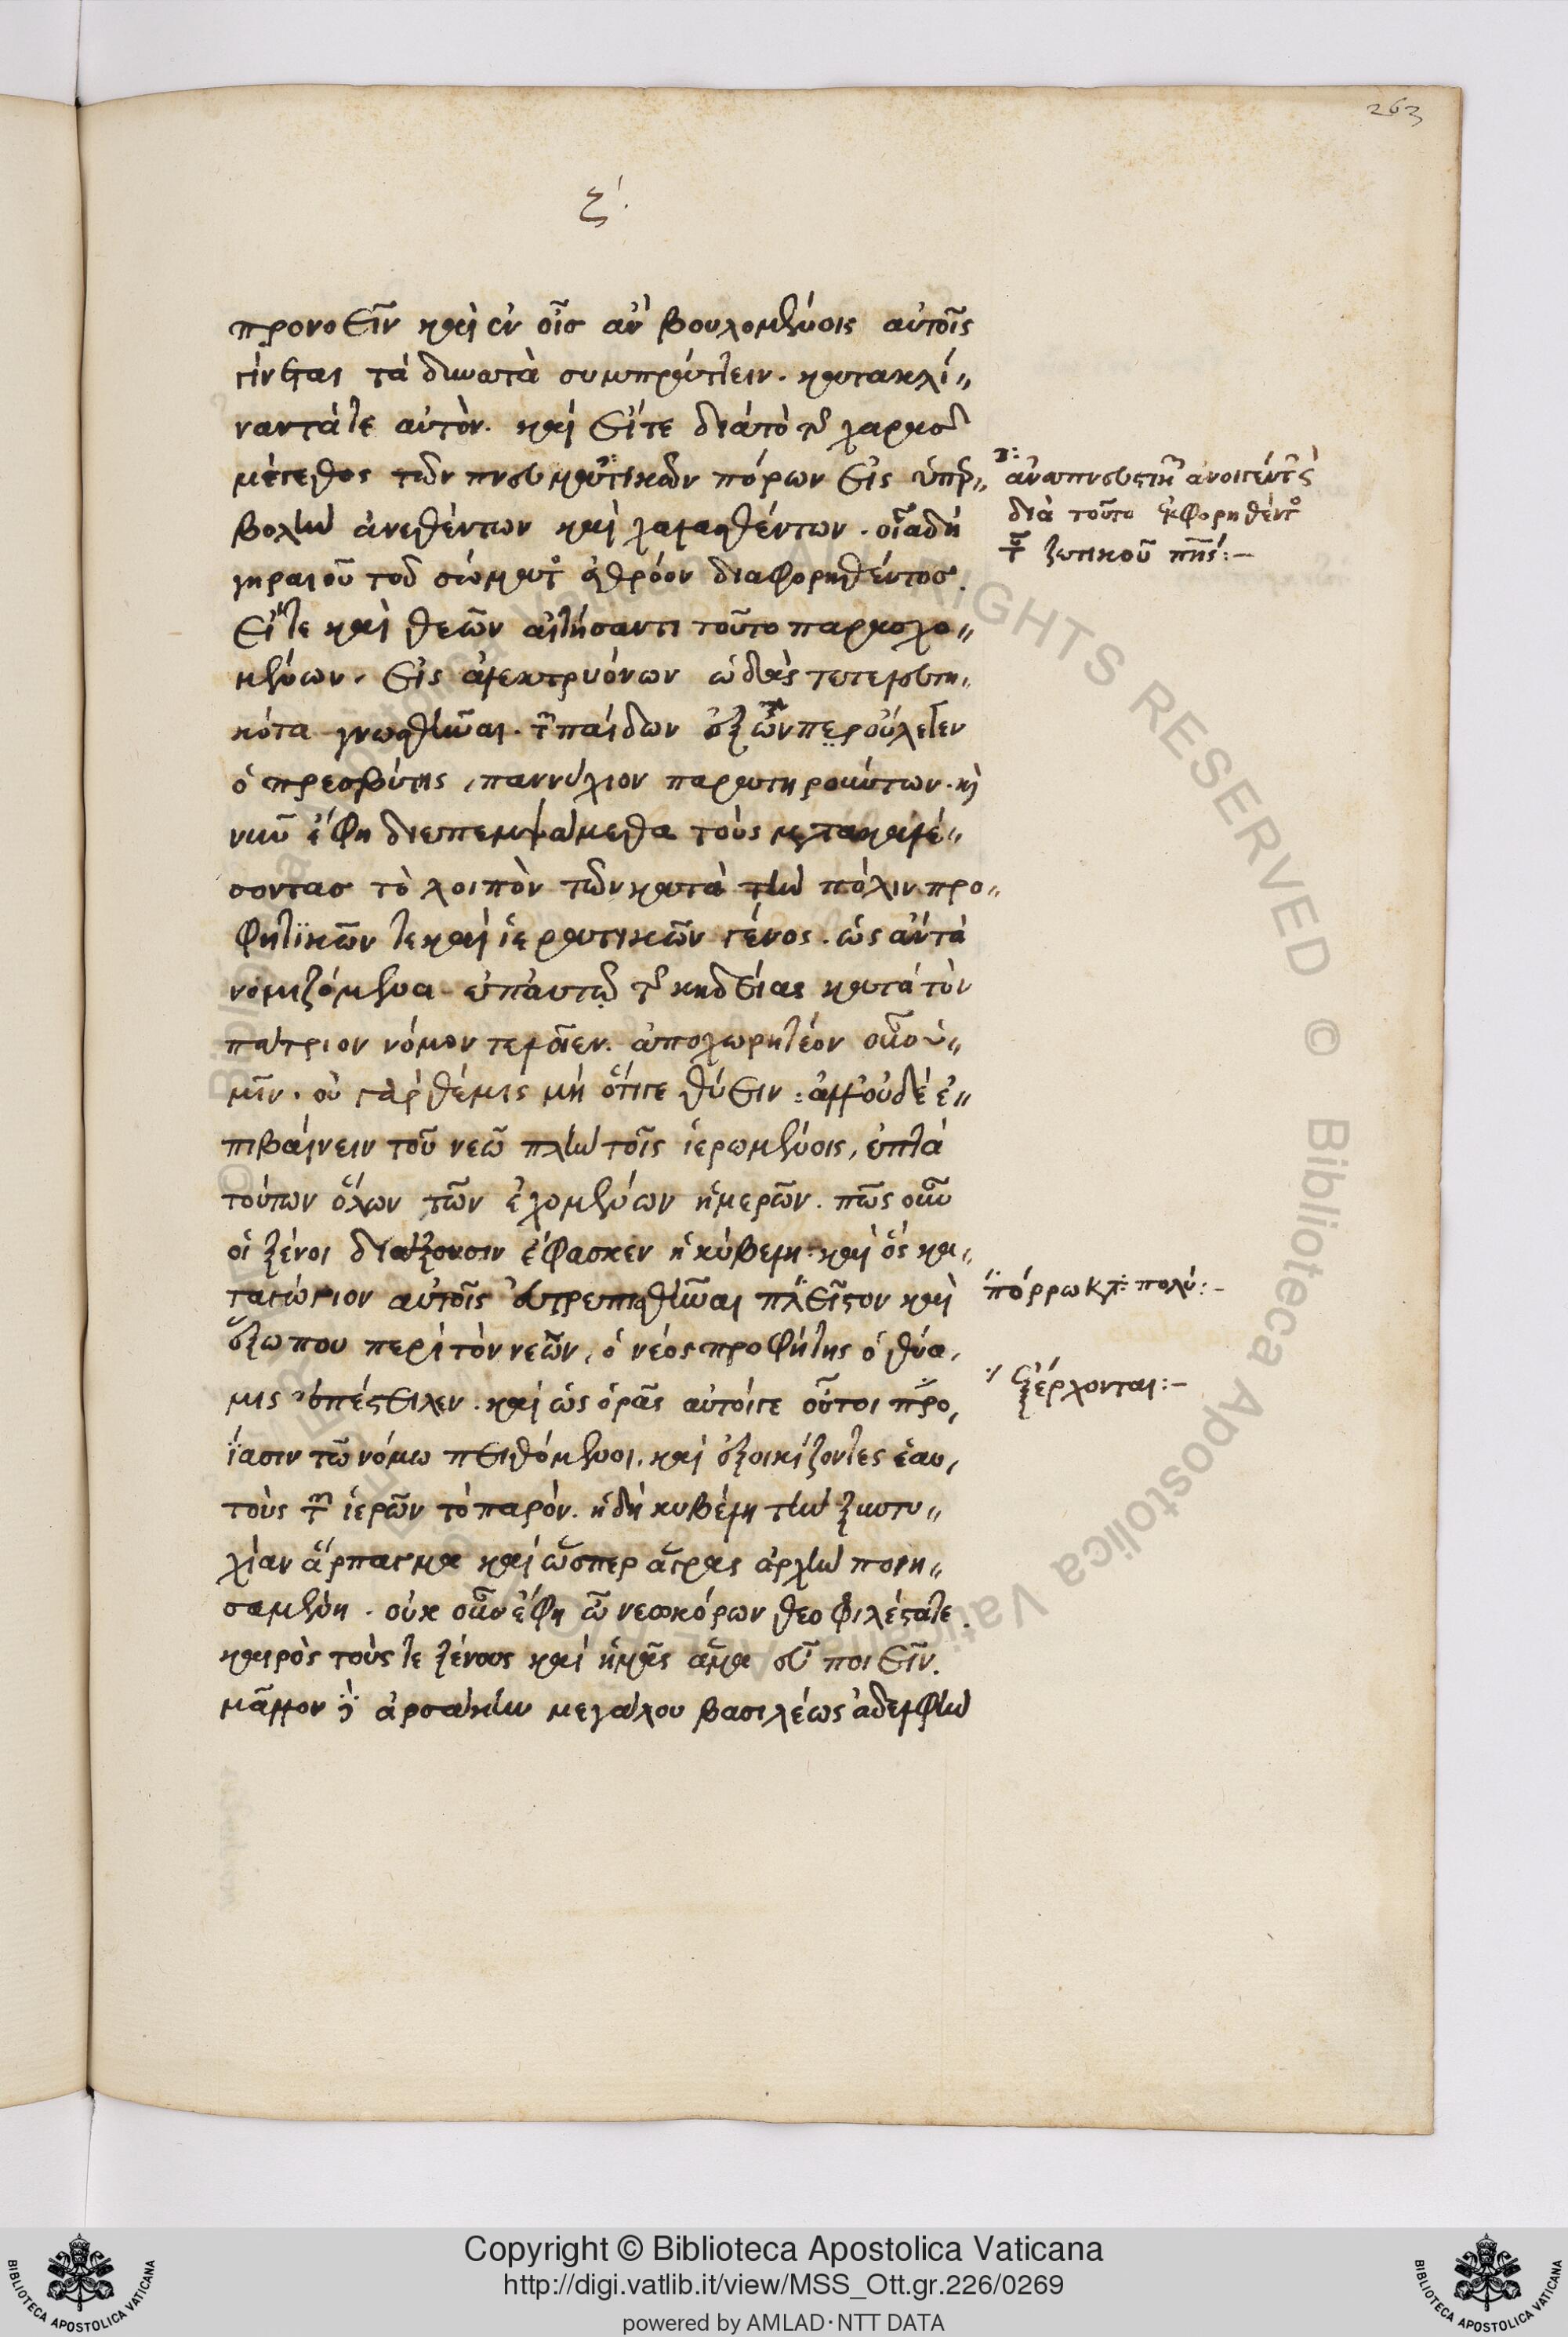 263
ζ΄.
προνοεῖν καὶ ἐν οἷσ ἂν βουλομένοις αὐτοῖς
γίνεται τὰ δυνατὰ συμπράττειν. κατακλί„
ναντά τε αὐτὸν. καὶ εἴτε διὰ τὸ τῆς χαρᾶς
μέγεθος τῶν πνευματικῶν πόρων εἰς ὑπερ„
βολὴν ἀνεθέντων καὶ χαλασθέντων. οἷα δὴ
γηραιοῦ τοῦ σώματος ἀθρόον διαφορηθέντοσ.
εἴτε καὶ θεῶν αἰτήσαντι τοῦτο παρασχο„
μένων. εἰς ἀλεκτρυόνων ᾠδὰς τετελευτη„
κότα γνωσθῆναι. τῶν παίδων ἐξ ὧνπερ οὐλεῖεν
ὁ πρεσβύτης, παννύχιον παρατηρούντων. κὶ
νῦν ἔφη διεπεμψάμεθα τοὺς μετακαλέ„
σοντασ τὸ λοιπὸν τῶν κατὰ τὴν πόλιν προ„
φητϊκῶν τε καὶ ἱερατικῶν γένος. ὡς ἂν τὰ
νομιζόμενα ἐπ' αὐτῷ τῆς κηδείας κατὰ τὸν
πάτριον νόμον τελοῖεν. ἀποχωρητέον οὖν ὑ„
μῖν. οὐ γὰρ θέμις μή ὅτιγε θύειν: ἀλλ' οὐδὲ ἐ„
πιβαίνειν τοῦ νεῶ πλὴν τοῖς ἱερωμένοις, ἑπτὰ
τούτων ὅλων τῶν ἐχομένων ἡμερῶν. πῶς οὖν
οἱ ξένοι διάξουσιν ἔφασκεν ἡ κύβελη. καὶ ὃς κα„
ταγώγιον αὐτοῖς εὐτρεπισθῆναι πλεῖστον καὶ
ἔξω που περὶ τὸν νεῶν, ὁ νέος προφήτης ὁ θύα,
μις ἐπέστειλεν. καὶ ὡς ὁρᾶς αὐτοίγε οὗτοι προ,
ΐασιν τῶ νόμω πειθόμενοι. καὶ ἐξοικίζοντες ἑαυ,
τοὺς τῶν ἱερῶν τὸ παρόν. ἡ δὴ κυβέλη τὴν ξυντυ„
χίαν ἅρπαγμα καὶ ὥσπερ ἄγρας ἀρχὴν ποιη„
σαμένη. οὐκ οὖν ἔφη ὦ νεωκόρων θεοφιλέστατε.
καιρὸς τούς τε ξένους καὶ ἡμᾶς ἅμα εὖ ποιεῖν.
μᾶλλον δὲ ἀρσάκην μεγάλου βασιλέως ἀδελφὴν
ἀναπνευστικῶν ἀνοιγέντων
διὰ τοῦτο ἐκφορηθέντος
τοῦ ζωτικοῦ πνς:–
πόρρω κατὰ πολύ:–
ἐξέρχονται:–
Copyright © Biblioteca Apostolica Vaticana
http://digi.vatlib.it/view/MSS_Ott.gr.226/0269
powered by AMLAD·NTT DATA